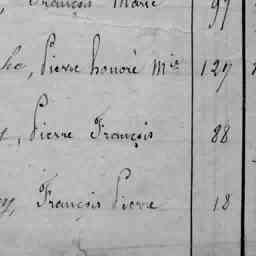 François Marie 97
Pierre honoré Mie 127
Pierre François 88
François Pierre 18